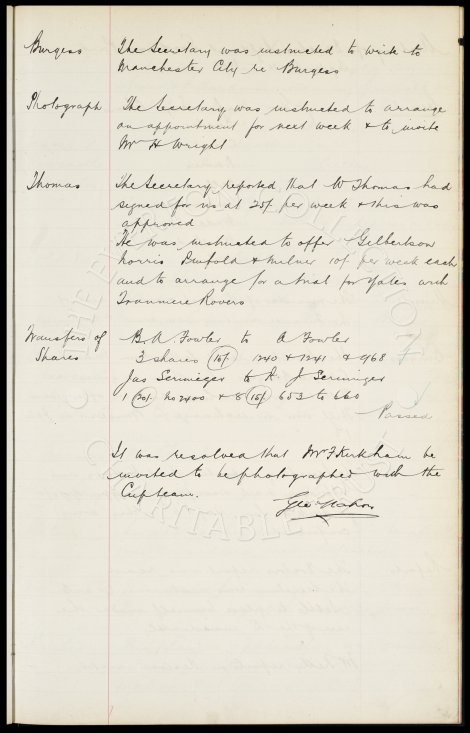 Burgess The Secretary was instructed to write to
Manchester City re Burgess
Photograph The Secretary was instructed to arrange
an appointment for next week & to invite
Mr H Wright
Thomas The Secretary reported that W Thomas had
signed for us at 25/ per week & this was
approved
He was instructed to offer Gilbertson
Norris Penfold & Milner 10/ per week each
and to arrange for a trial for Yates with
Tranmere Rovers
Transfers of Shares B. A Fowler to A Fowler
3 shares (10/) 1240 & 1241 & 968
Jas Scrimiger to R. J Scrimiger
1 (30/) No 2400 & 8 (10/) 653 to 660
Passed
It was resolved that Mr F Kirkham be
invited to be photographed with the
Cup team.
Geo Mahon
THE EVERTON COLLECTION
CHARITABLE TRUST